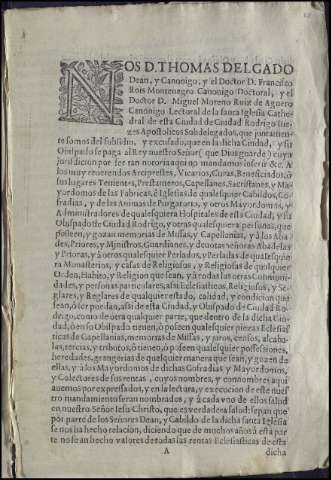 NOS D. THOMAS DELGADO
Dean, y Canonigo, y el Doctor D. Francisco
Rois Montenegro Canonigo Doctoral, y el
Doctor D. Miguel Moreno Ruiz de Aguero
Canonigo Lectoral de la santa Iglesia Cathe-
dral de esta Ciudad de Ciudad Rodrigo Iue-
zes Apostolicos Subdelegados, que juntamen-
te somos del subsidio, y excusado, que en la dicha Ciudad, y su
Obispado se paga al Rey nuestro Señor (que Dios guarde) cuya
jurisdicion por ser tan notoria aqui no mandamos inserir &c. A
los muy reverendos Arciprestes, Vicarios, Curas, Beneficiados, ò
sus lugares Tenientes, Prestameros, Capellanes, Sacristanes, y Ma-
yordomos de las Fabricas, è Iglesias de qualesquier Cabildos, Co-
fradias, y de las Animas de Purgatorio, y otros Mayordomos, y
Administradores de qualesquiera Hospitales de esta Ciudad, y su
Obispado de Ciudad Rodrigo, y otras qualesquiera personas, que
posseen, y gozan memorias de Missas, y Capellanias, y à los Aba-
des, Priores, y Ministros, Guardianes, y devotas señoras Abadesas
y Prioras, y à otros qualesquier Perlados, y Perladas de qualesquie-
ra Monasterios, y casas de Religiosas, y Religiosos de qualquier
Orden, Habito, y Religion que sean, y à todas las otras Comuni-
dades, y personas particulares, assi Ecclesiasticos, Religiosos, y Se-
glares, y Reglares de qualquier estado, calidad, y condicion que
sean, ò ser puedan, assi de esta Ciudad, y Obispado de Ciudad Ro-
drigo, como de otra qualquier parte, que dentro de la dicha Ciu-
dad, ò en su Obispado tienen, ò posseen qualesquier piezas Eclesias-
ticas de Capellanias, memorias de Missas, y otros, censos, alcaba-
las, rentas, y tributos, ò tienen, ò posseen qualesquier possessiones,
heredades, grangerias de qualquier manera que sean, y gozen de
ellas, y à los Mayordomos de dichas Cofradias y Mayordomos,
y Colectores de sus rentas, cuyos nombres, y connombres aqui
avemos por expressados, y en la lectura, y execucion de este nues-
tro mandamiento seran nombrados, y à cada uno de ellos salud
en nuestro Señor Iesu Christo, que es verdadera salud: sepan que
por parte de los Señores Dean, y Cabildo de la dicha santa Iglesia
se nos ha hecho relacion, diciendo que de muchos años à esta par-
te no se an hecho valores de todas las rentas Ecclesiasticas de esta
A
dicha